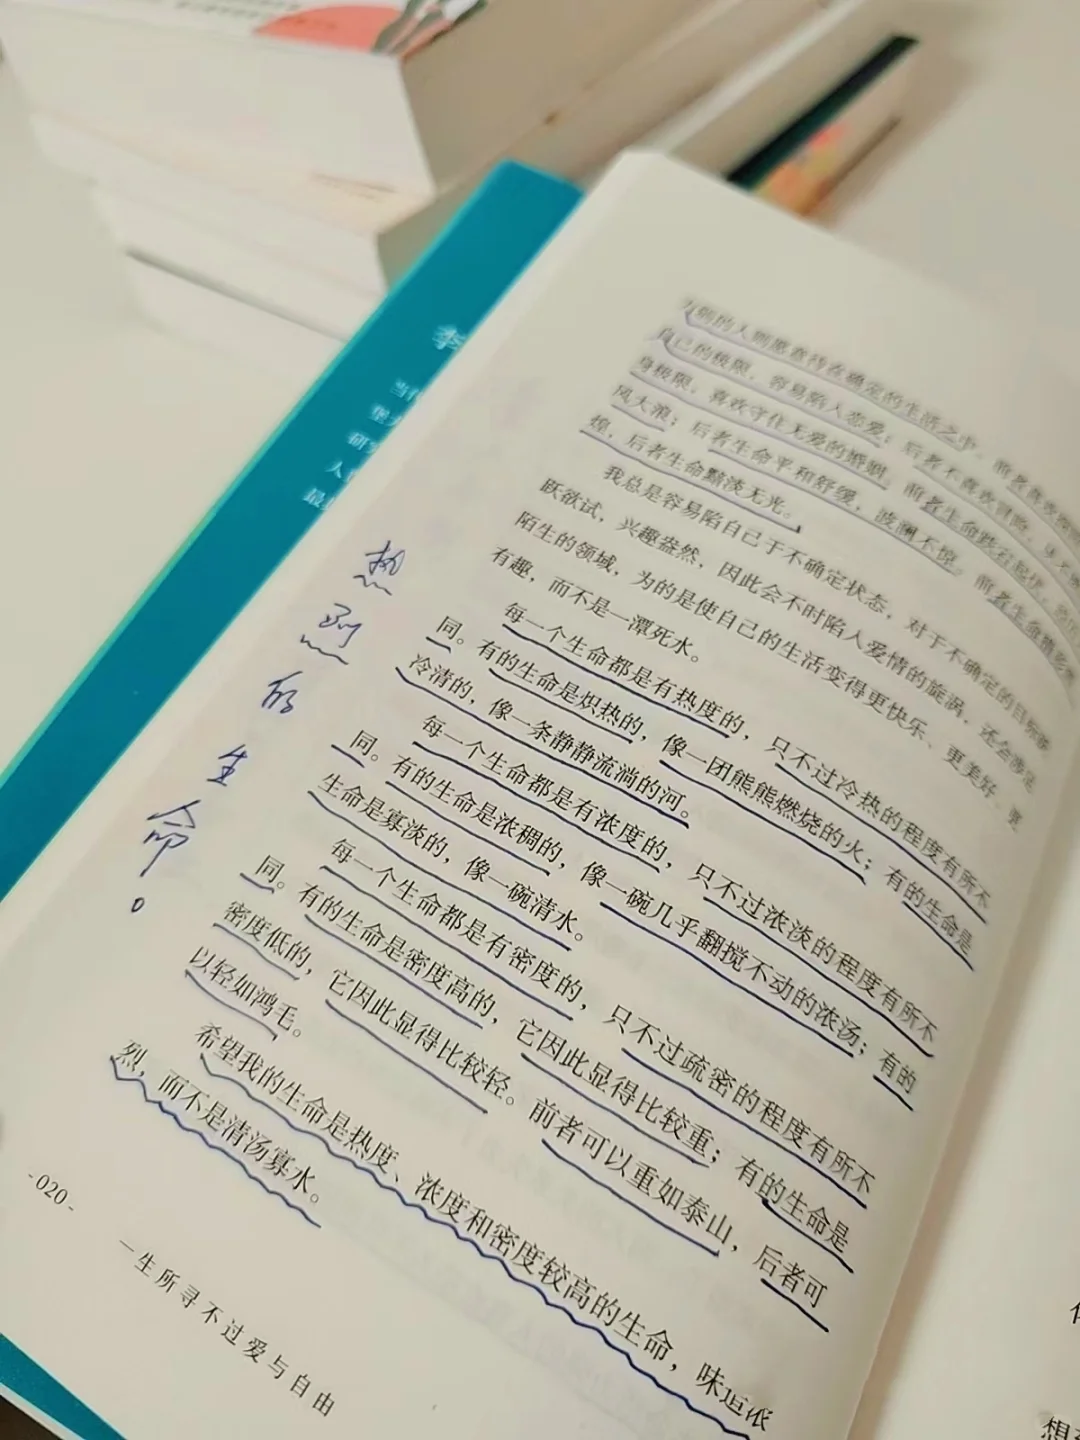 的人则愿意待在确定的生活之中。前者喜欢
自己的极限，容易陷入恋爱；后者不喜欢冒险，从不
身极限，喜欢守住无爱的婚姻。前者生命跌宕起伏，
风大浪；后者生命平和舒缓，波澜不惊。前者生命
煌，后者生命黯淡无光。
我总是容易陷自己于不确定状态，对于不确定的目标
跃欲试，兴趣盎然，因此会不时陷入爱情的旋涡，还会涉足
陌生的领域，为的是使自己的生活变得更快乐、更美好、更
有趣，而不是一潭死水。
每一个生命都是有热度的，只不过冷热的程度有所不
同。有的生命是炽热的，像一团熊熊燃烧的火；有的生命是
冷清的，像一条静静流淌的河。
每一个生命都是有浓度的，只不过浓淡的程度有所不
同。有的生命是浓稠的，像一碗几乎翻搅不动的浓汤；有的
生命是寡淡的，像一碗清水。
每一个生命都是有密度的，只不过疏密的程度有所不
同。有的生命是密度高的，它因此显得比较重；有的生命是
密度低的，它因此显得比较轻。前者可以重如泰山，后者可
以轻如鸿毛。
希望我的生命是热度、浓度和密度较高的生命，味道浓
烈，而不是清汤寡水。
热烈的生命。
-020-
一生所寻不过爱与自由
李
当
研究
人
最
想